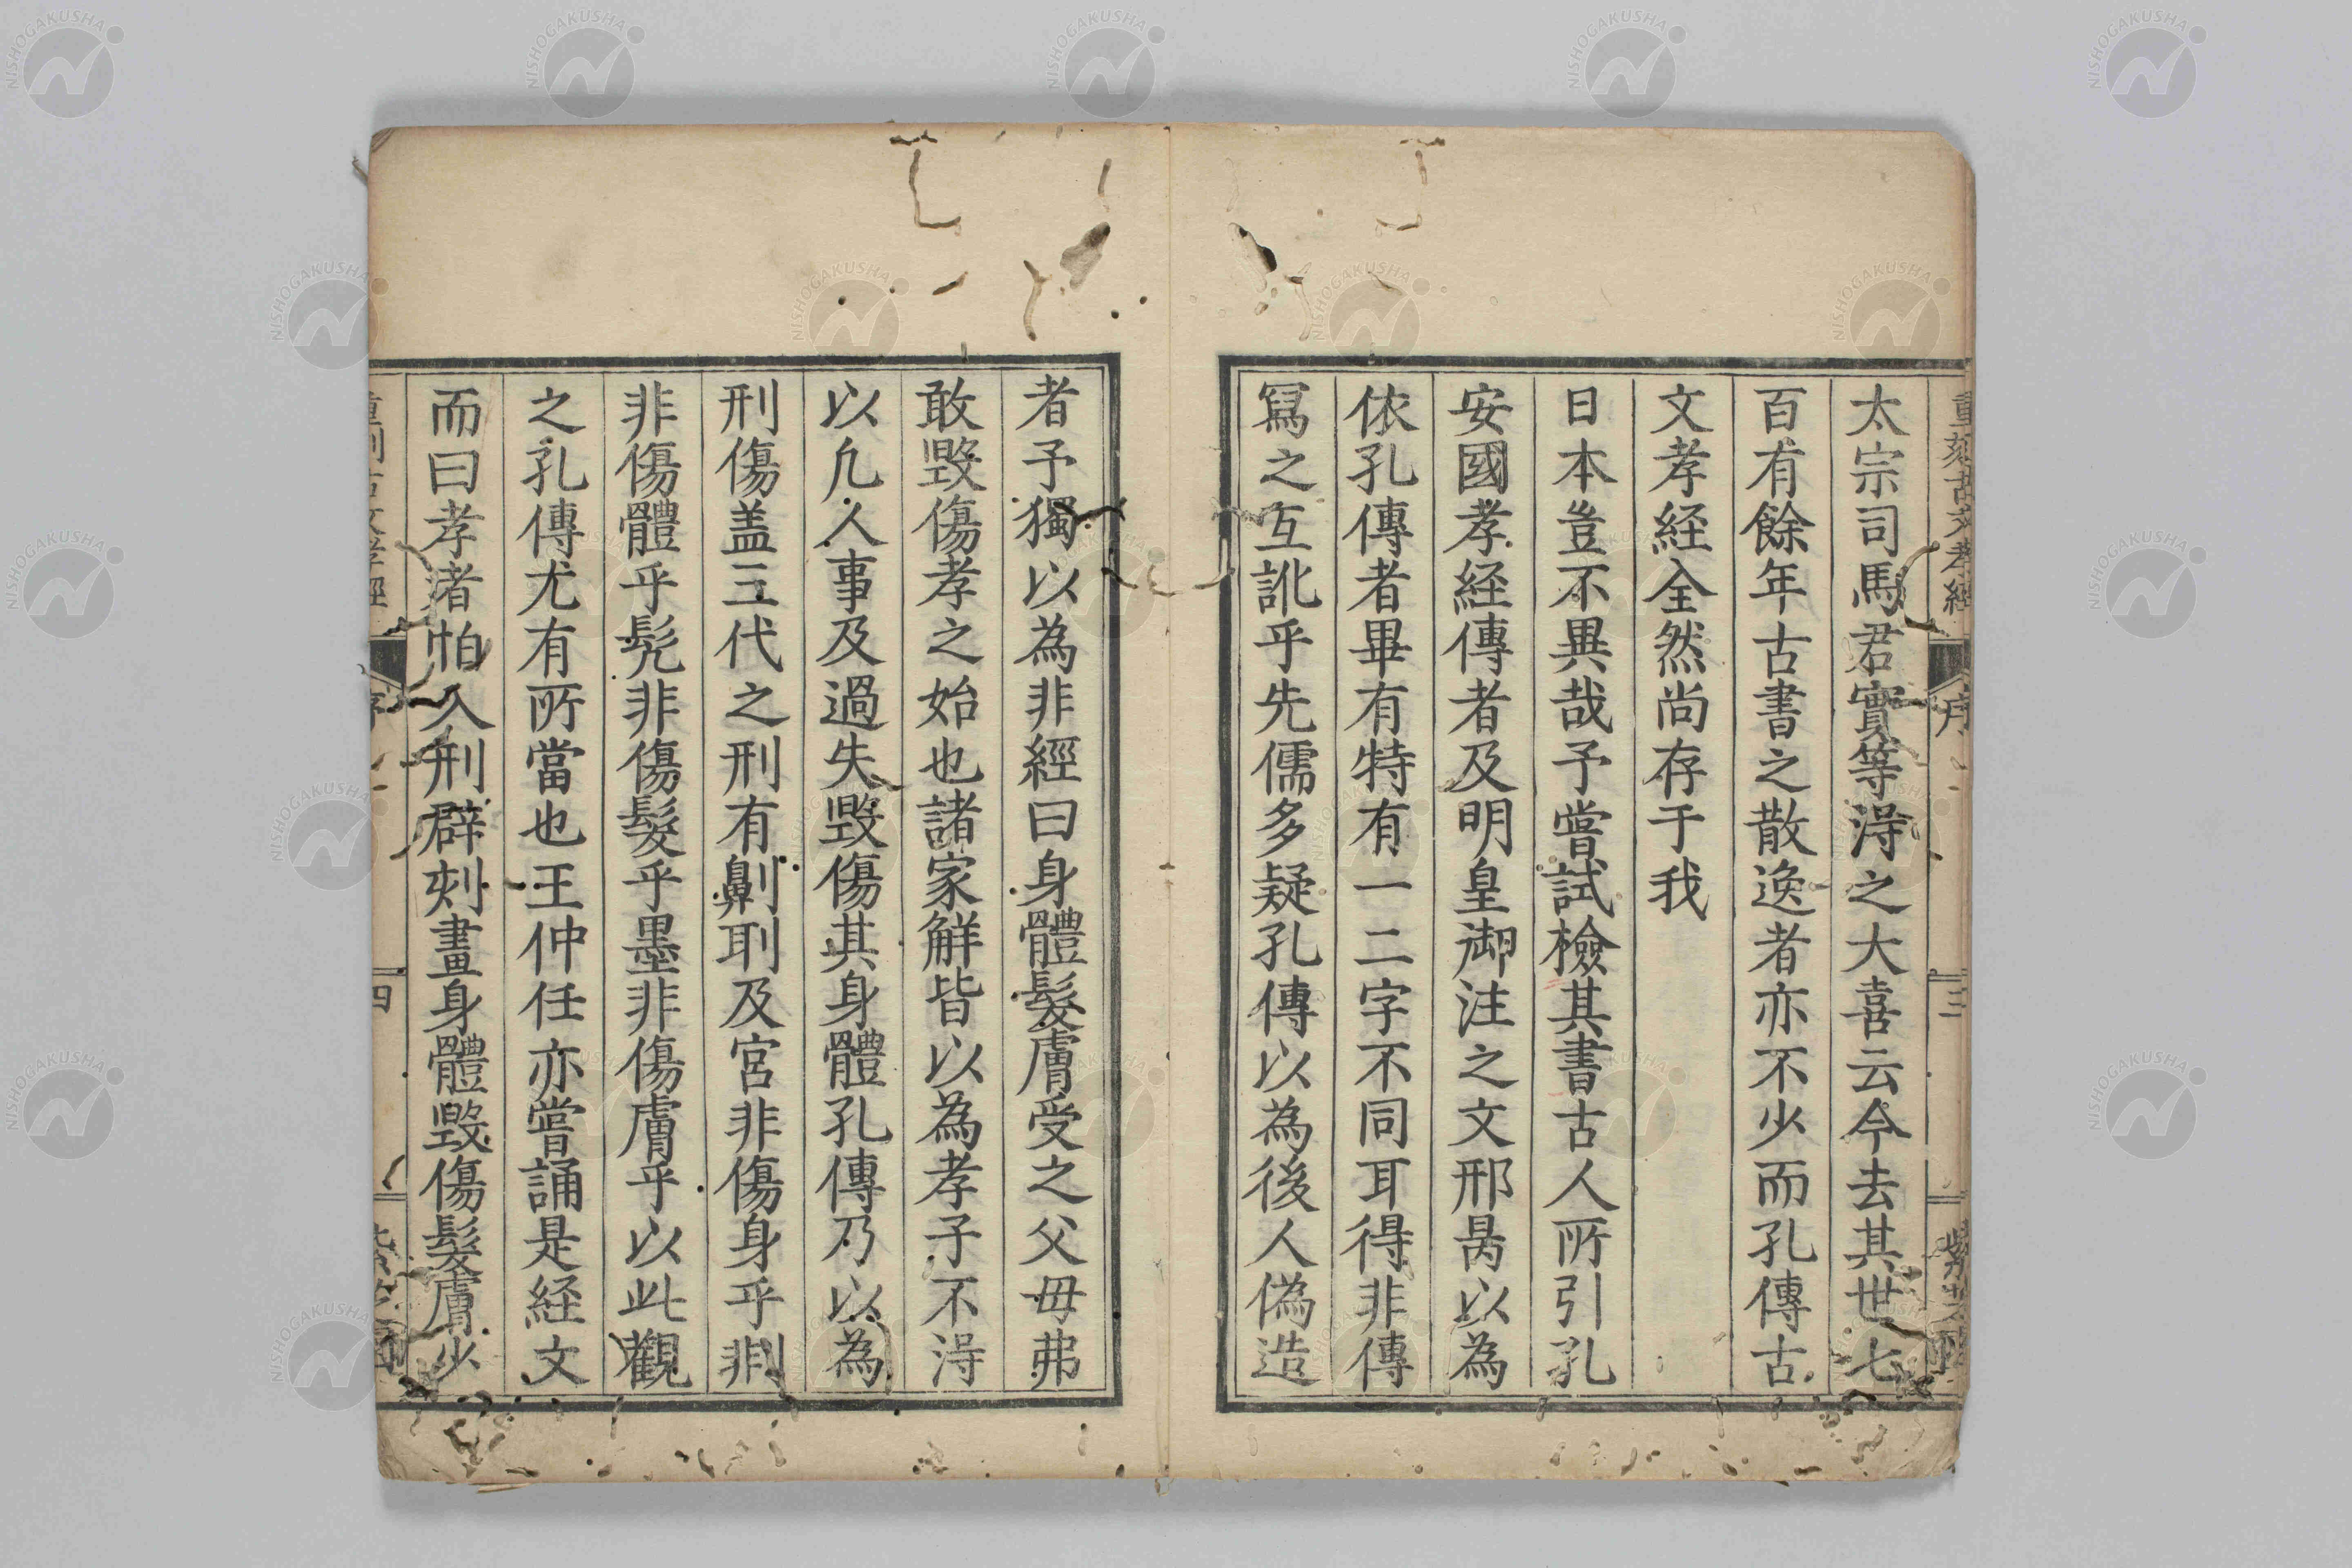 重刻古文孝經 序 三 紫芝園
太宗司馬君實等淂之大喜云今去其世七
百有餘年古書之散逸者亦不少而孔傳古
文孝経全然尚存于我
日本豈不異哉予嘗試檢其書古人所引孔
安國孝経傳者及明皇御注之文邢昺以為
依孔傳者畢有特有一二字不同耳得非傳
冩之互訛乎先儒多疑孔傳以為後人偽造
者予獨以為非經曰身體髮膚受之父毋弗
敢毀傷孝之始也諸家解皆以為孝子不淂
以凢人事及過失毀傷其身體孔傳乃以為
刑傷盖三代之刑有劓刵及宮非傷身乎剕
非傷體乎髡非傷髮乎墨非傷膚乎以此觀
之孔傳尤有所當也王仲任亦嘗誦是経文
而曰孝渚怕入刑辟刻畫身體毀傷髮膚少
重刻古文孝經 序 四 紫芝園
NISHOGAKUSHA